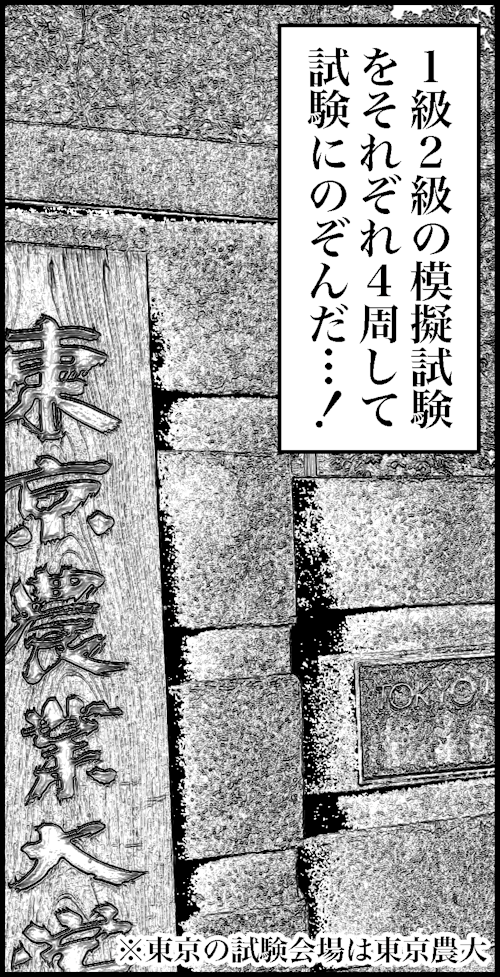 1級2級の模擬試験
をそれぞれ4周して
試験にのぞんだ…!
東京農業大学
TOKYO
※東京の試験会場は東京農大